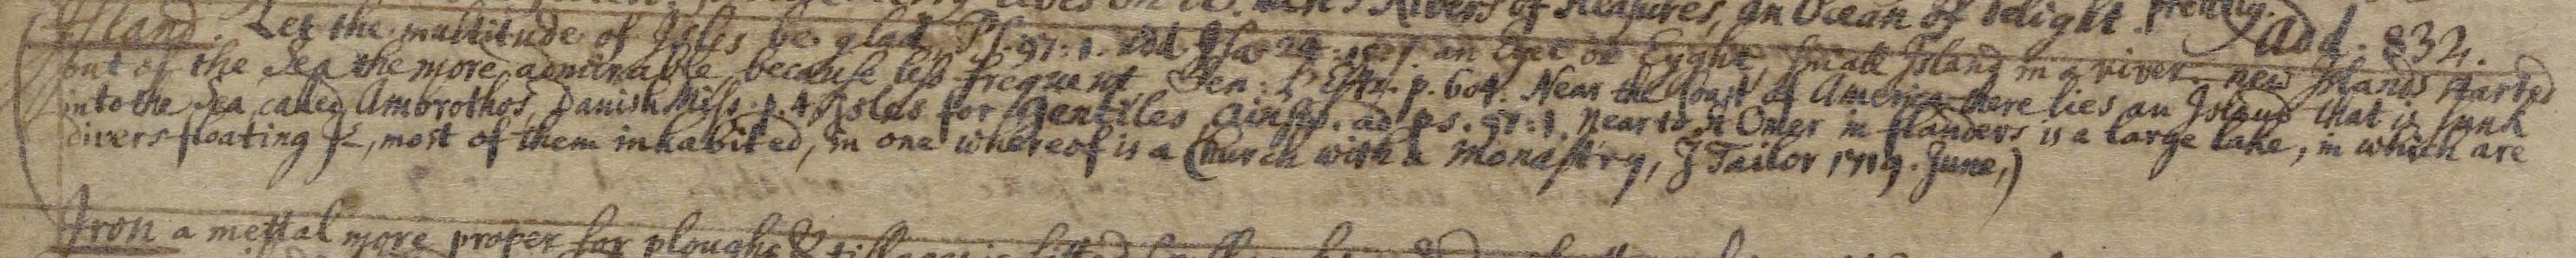 Rivers of Pleasures, an Ocean of delight. prettily.
Island. Let the multitude of Isles be glad Ps. 97:1. add. Isa 24. an Eyet or Eyght, small Island in a river. new Islands started add. 832.
out of the Sea the more admirable because less frequent, p. 604. Near the Coast of America there lies an Island that is sunk
into the Sea, called Ambrothos, Danish Miss. p. 4. Isles for Gentiles, Ainsw. ad ps. 97:1. near to St Omer in flanders is a large lake, in which are
divers floating Is, most of them inhabited, in one whereof is a Church with a Monastry, J Tailor 1719. June,)
Iron a mettal more proper for ploughs & tillage